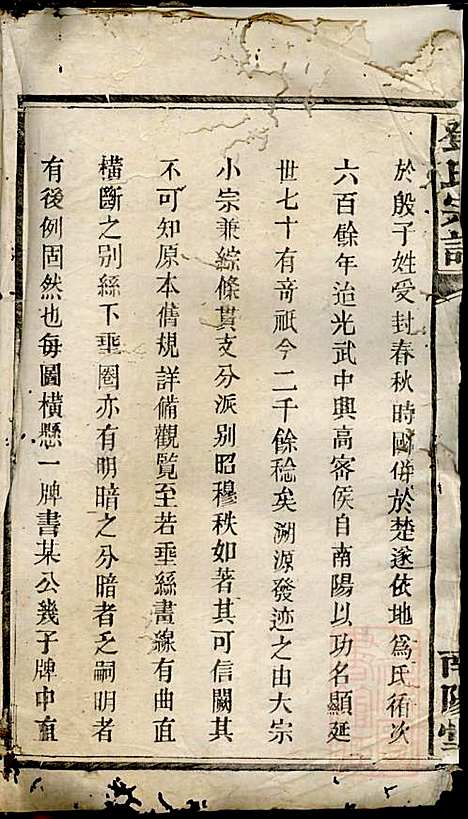 鄧氏宗譜
南陽堂
於殷子姓受封春秋時國併於楚遂依地爲氏循次
六百餘年迨光武中興高密侯自南陽以功名顯延
世七十有奇祇今二千餘稔矣溯源發迹之由大宗
小宗兼綜條貫支分派別昭穆秩如著其可信闕其
不可知原本舊規詳備觀覽至若垂絲畫線有曲直
橫斷之別絲下垂圈亦有明暗之分暗者乏嗣明者
有後例固然也每圖橫懸一牌書某公幾子牌中直